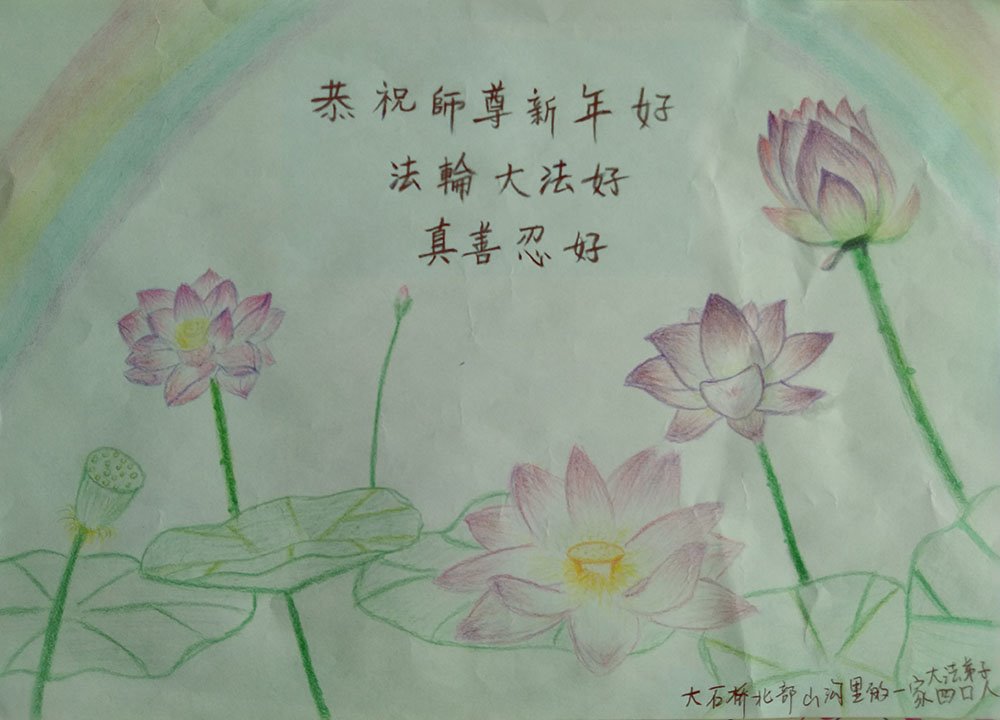 恭祝師尊新年好
法輪大法好
真善忍好
大石桥北部山沟里的一家四口人
大法弟子